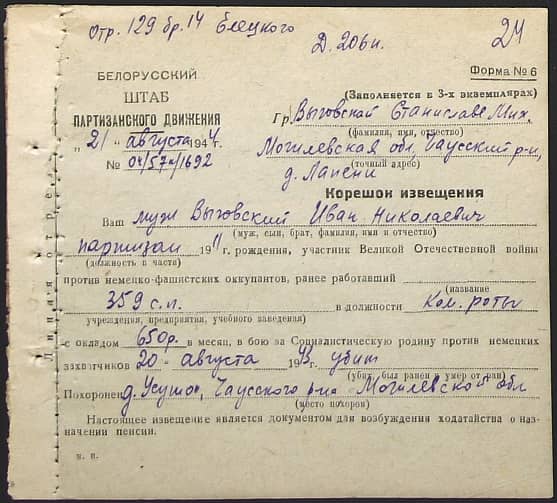 Отр. 129 бр. 14 Белецкого
Д. 206 н.
24
БЕЛОРУССКИЙ
ШТАБ
ПАРТИЗАНСКОГО ДВИЖЕНИЯ
„21" августа 1944
№ 04/57н/1692
Форма № 6
(Заполняется в 3-х экземплярах)
Гр. Выговской Станиславе Мих.
(фамилия, имя, отчество)
Могилевская обл, Чаусский р-н,
(точный адрес)
д.
Корешок извещения
Ваш муж Выговский Иван Николаевич
(муж, сын, брат, фамилия, имя и отчество)
партизан 1911 г. рождения, участник Великой Отечественной войны
(должность в части)
против немецко-фашистских оккупантов, ранее работавший
(название
359 с.п. в должности Ком. роты
учреждения, предприятия, учебного заведения)
с окладом 650р. в месяц, в бою за Социалистическую родину против немецких
захватчиков 20 августа 1943 убит
(убит, был ранен и умер от ран)
Похоронен д. Усушок, Чаусского р-на Могилевской обл
(место похорон)
Настоящее извещение является документом для возбуждения ходатайства о наз-
начении пенсии.
Линия отреза